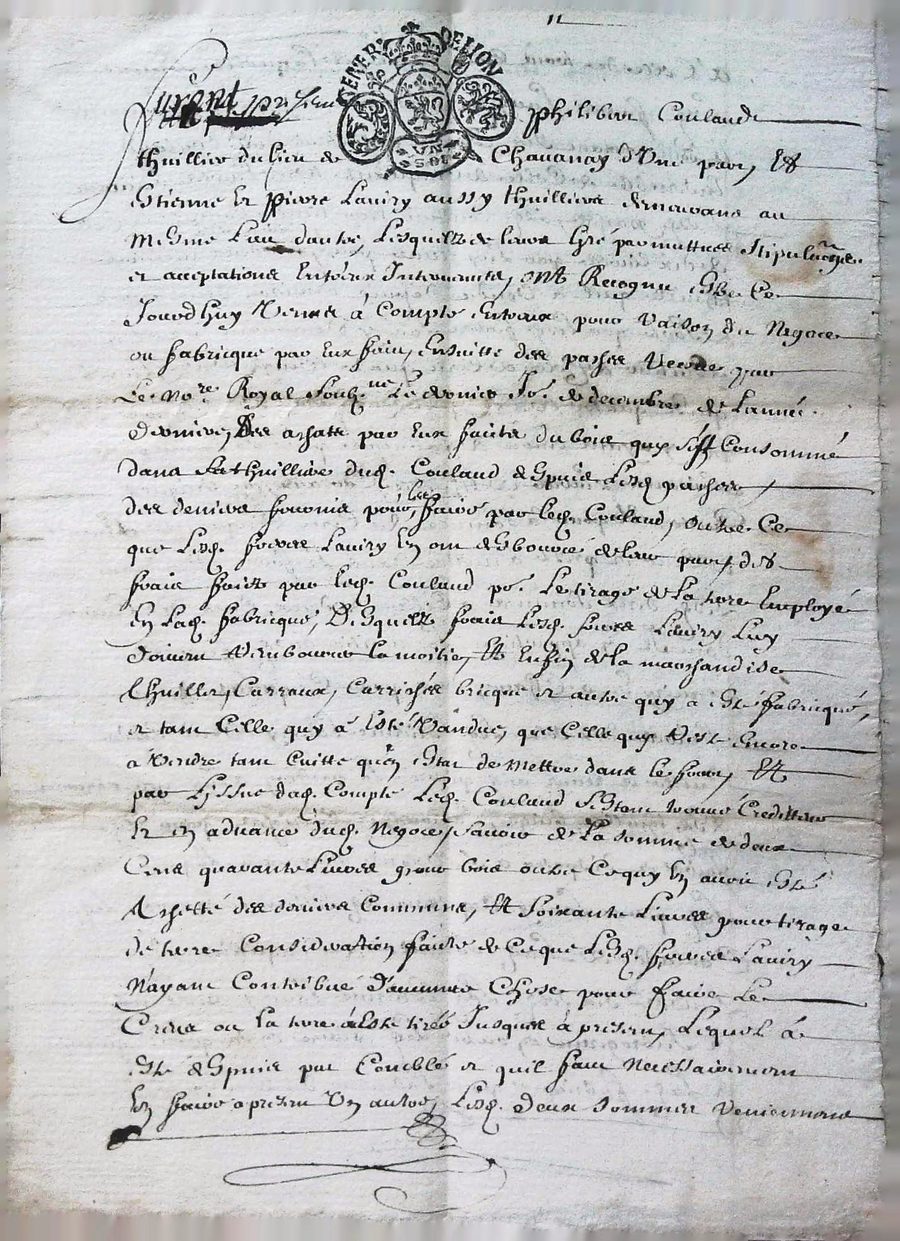 GENER. DE LION
VN SOL
11
Furent presens Philibert Couland
thuillier du lieu de Chavanay d'Une part, Et
Estienne Et Pierre Lauiry aussy thuilliers demeurans au
mesme Lieu d'autre, Lesquelz de leurs gré par mutuelles Stipulaõns
et acceptations Entr'eux Intervenantes, ont Recognu estre Ce
Jourdhuy Venus à Compte entreux pour raison du Negoce
ou fabricque par Eux fait, Ensuitte des paches receües par
Le no.re Royal soub.ne Le dernier Jo.r de decembre de L'année
derniere, Des achatz par Eux faitz du bois quy s'est Consommé
dans La thuillire dud. Couland despuis Lesd. paches
des deniers fournis pour les faire par led. Couland, outre Ce
que Lesd. freres Lauiry En ont desboursé de leur part, des
frais faitz par led. Couland po.r Le tirage de La terre Employé
En Lad. fabricque, Desquelz frais Lesd. freres Lauiry Luy
doiuent rembourcer la moitié, Et Enfin de la marchandise
thuilles, Carraux, Carrichés bricque et autre quy a esté fabricqué,
et tant Celle quy a Esté Vandue, que Celle quy reste Encore
à Vendre tant Cuitte qu'en estat de mettre dans le four, Et
par L'issue dud. Compte Led. Couland s'estant trouué Crediteur
Et en aduance dud. Negoce, sauoir de La somme de deux
Cens quarante Liures pour bois outre Ce quy En auoit esté
Achetté des deniers Communs, Et soixante Liures pour tirage
de terre Consideration faite de Ce que Lesd. freres Lauiry
N'ayant Contribué d'aucune Chose pour faire Le
Creux ou la terre a Esté tirée Jusques à present, Lequel à
esté despuis peu Comblé et quil faut Necessairement
En faire a present Un autre, Lesd. deux sommes reuiennent